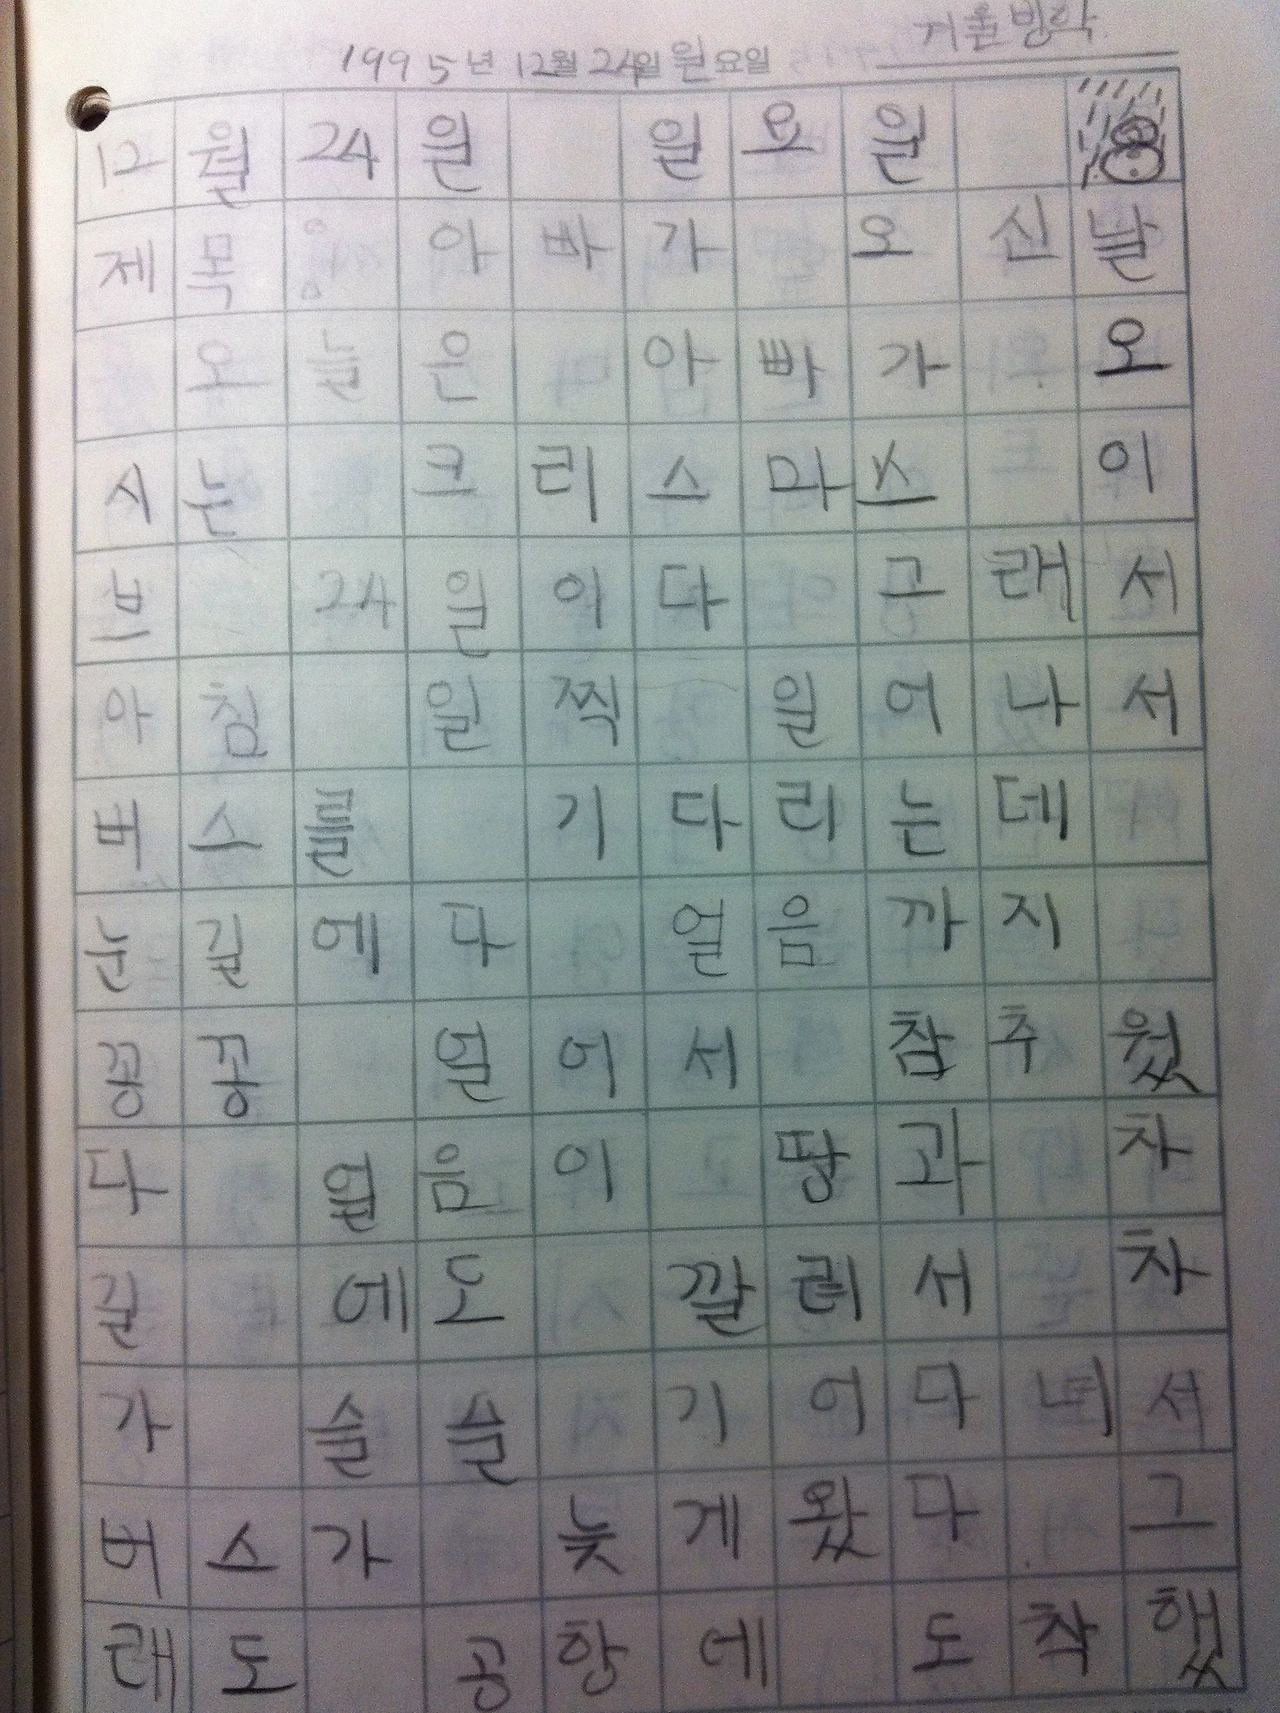 겨울방학
1995년 12월 24일 월요일
12월 24일 일요일
제목: 아빠가 오신날
오늘은 아빠가 오
시는 크리스마스 이
브 24일이다 그래서
아침 일찍 일어나서
버스를 기다리는데
눈길에다 얼음까지
꽁꽁 얼어서 참추웠
다 얼음이 땅과 차
길 에도 깔려서 차
가 슬슬 기어다녀서
버스가 늦게왔다 그
래도 공항에 도착했